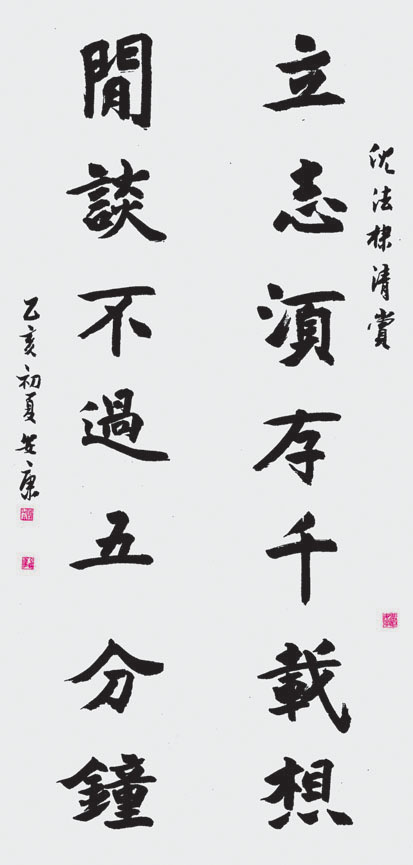 立志須存千載想
閒談不過五分鐘
法棣清賞
乙亥初夏安康